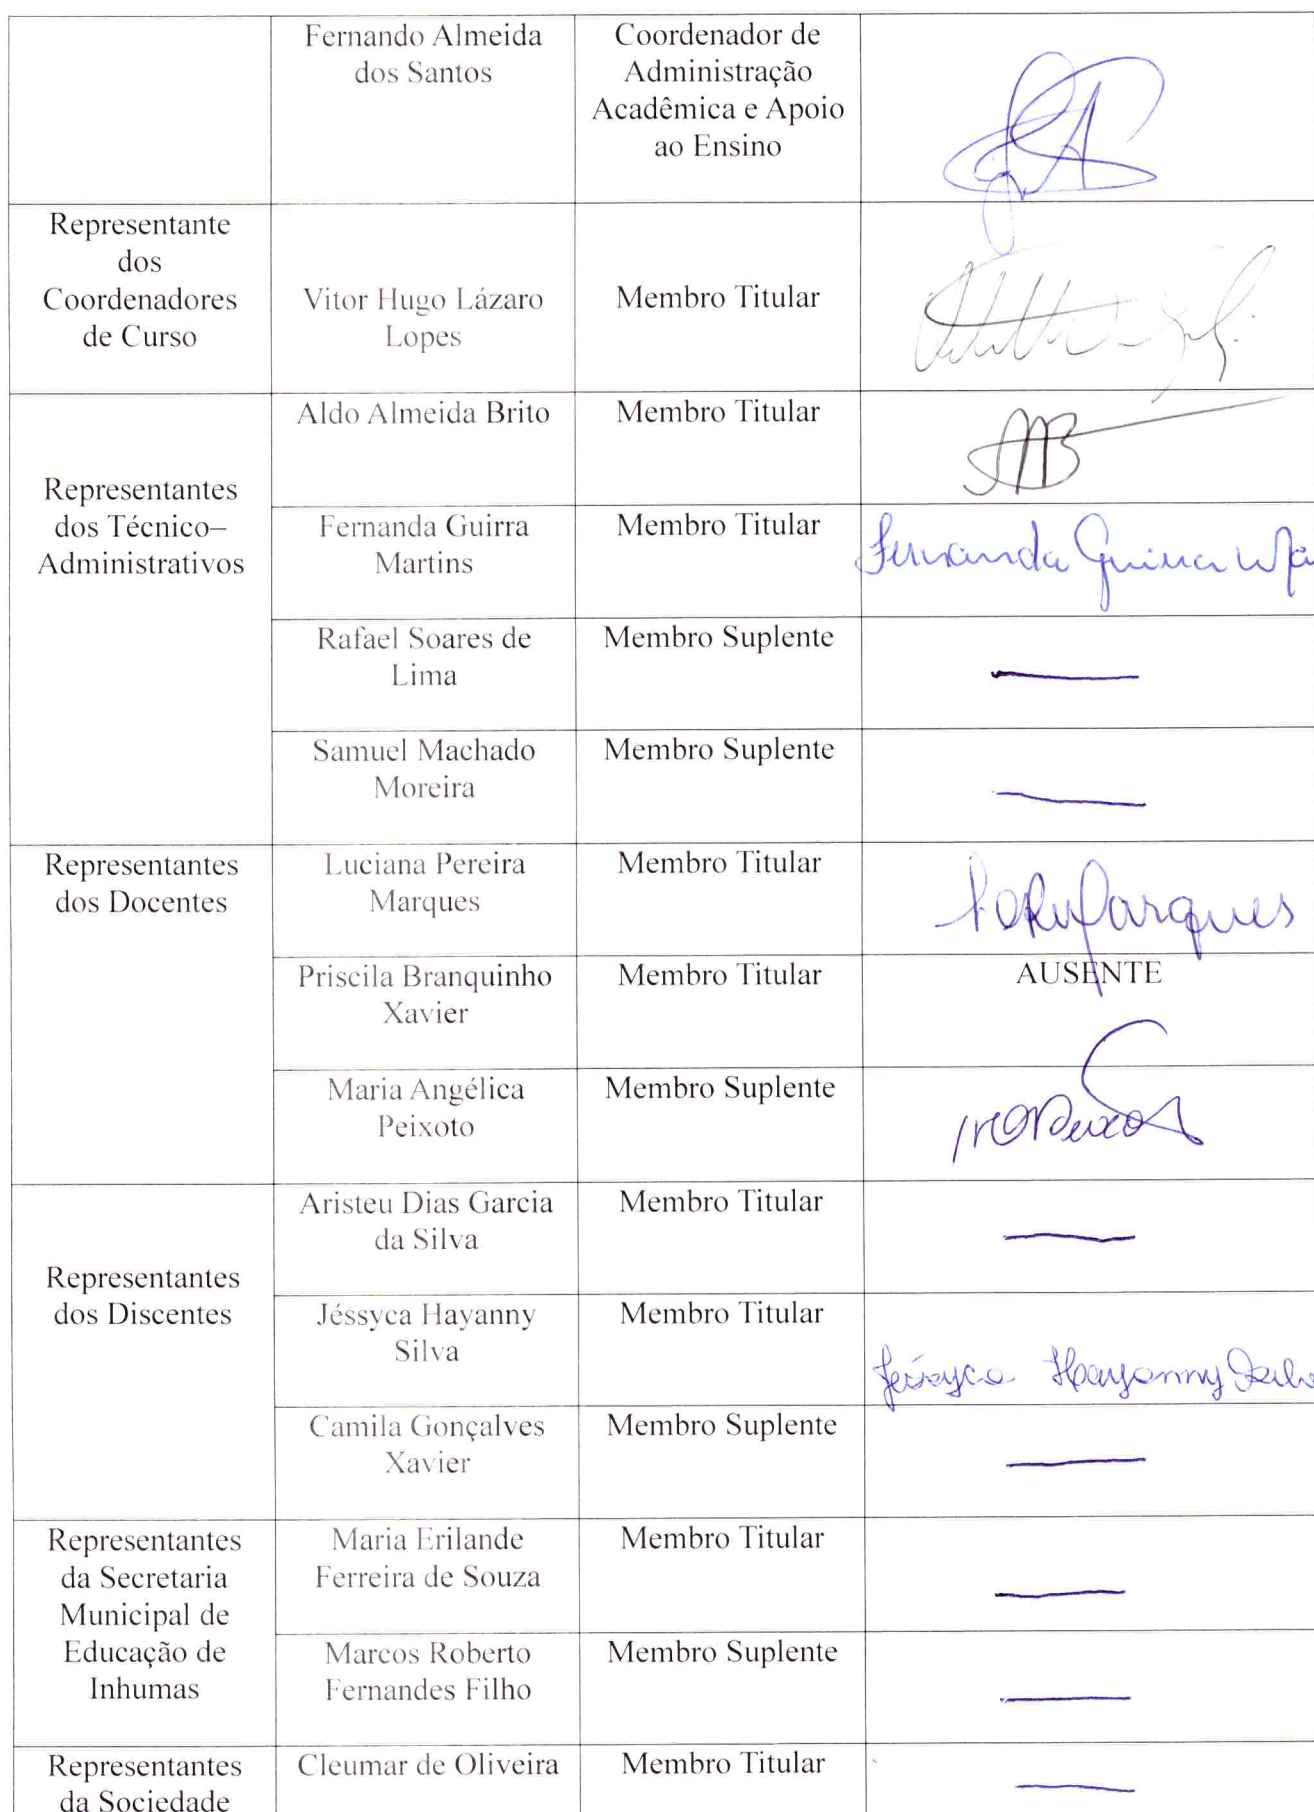 Fernando Almeida
dos Santos
Coordenador de
Administração
Acadêmica e Apoio
ao Ensino
Representante
dos
Coordenadores
de Curso
Vitor Hugo Lázaro
Lopes
Membro Titular
Representantes
dos Técnico–
Administrativos
Aldo Almeida Brito
Membro Titular
Fernanda Guirra
Martins
Membro Titular
Fernanda Guirra Ma
Rafael Soares de
Lima
Membro Suplente
Samuel Machado
Moreira
Membro Suplente
Representantes
dos Docentes
Luciana Pereira
Marques
Membro Titular
Priscila Branquinho
Xavier
Membro Titular
AUSENTE
Maria Angélica
Peixoto
Membro Suplente
Representantes
dos Discentes
Aristeu Dias Garcia
da Silva
Membro Titular
Jéssyca Hayanny
Silva
Membro Titular
Jéssyca Hayanny Silva
Camila Gonçalves
Xavier
Membro Suplente
Representantes
da Secretaria
Municipal de
Educação de
Inhumas
Maria Erilande
Ferreira de Souza
Membro Titular
Marcos Roberto
Fernandes Filho
Membro Suplente
Representantes
da Sociedade
Cleumar de Oliveira
Membro Titular